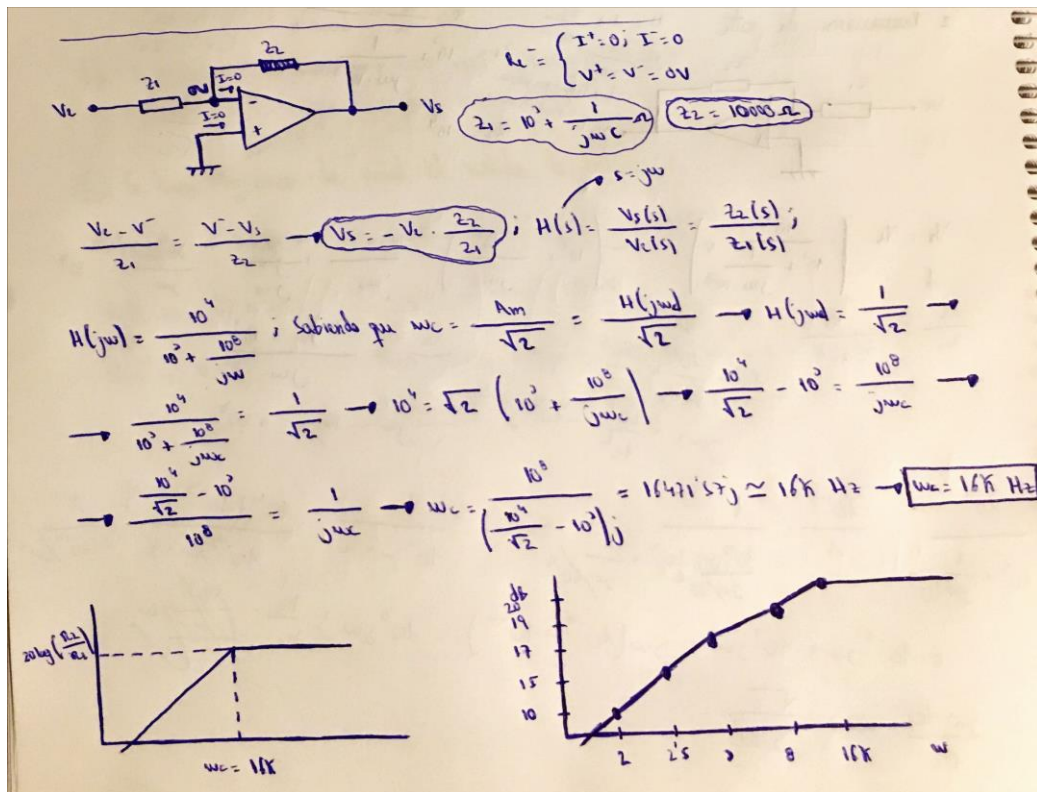 Z2
Z1
I=0
I=0
0V
Ve
Vs
-
+
Re⁻ = { I⁺=0; I⁻=0
V⁺ = V⁻ = 0V
Z1 = 10³ + 1/(jωC) Ω
Z2 = 10000 Ω
s=jω
(Ve - V⁻)/Z1 = (V⁻ - Vs)/Z2 → Vs = -Ve · Z2/Z1 ; H(s) = Vs(s)/Ve(s) = Z2(s)/Z1(s);
H(jω) = 10⁴/(10³ + 10⁸/jω) ; Sabiendo que ωc = Am/√2 = H(jω)/√2 → H(jω) = 1/√2 →
→ 10⁴/(10³ + 10⁸/jωc) = 1/√2 → 10⁴ = √2 (10³ + 10⁸/jωc) → 10⁴/√2 - 10³ = 10⁸/jωc →
→ (10⁴/√2 - 10³)/10⁸ = 1/jωc → ωc = 10⁸/((10⁴/√2 - 10³)j) = 16471'57j ≃ 16K Hz → ωc = 16K Hz
20log(R2/R1)
ωc = 16K
dB
20
19
17
15
10
2
2'5
3
8
16K
ω